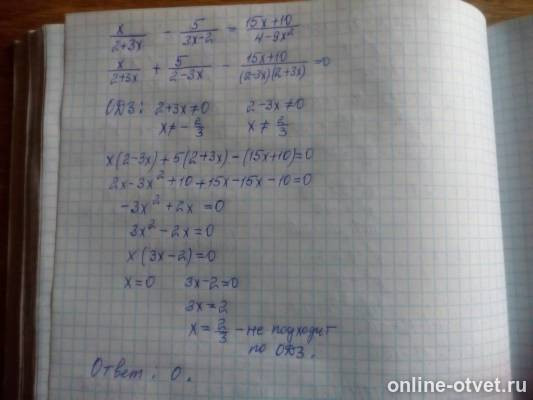 x/(2+3x) - 5/(3x-2) = (15x+10)/(4-9x²)
x/(2+3x) + 5/(2-3x) - (15x+10)/((2-3x)(2+3x)) = 0
ОДЗ: 2+3x≠0 2-3x≠0
x≠-2/3 x≠2/3
x(2-3x)+5(2+3x)-(15x+10)=0
2x-3x²+10+15x-15x-10=0
-3x²+2x=0
3x²-2x=0
x(3x-2)=0
x=0 3x-2=0
3x=2
x=2/3 - не подходит
по ОДЗ.
Ответ: 0.
online-otvet.ru